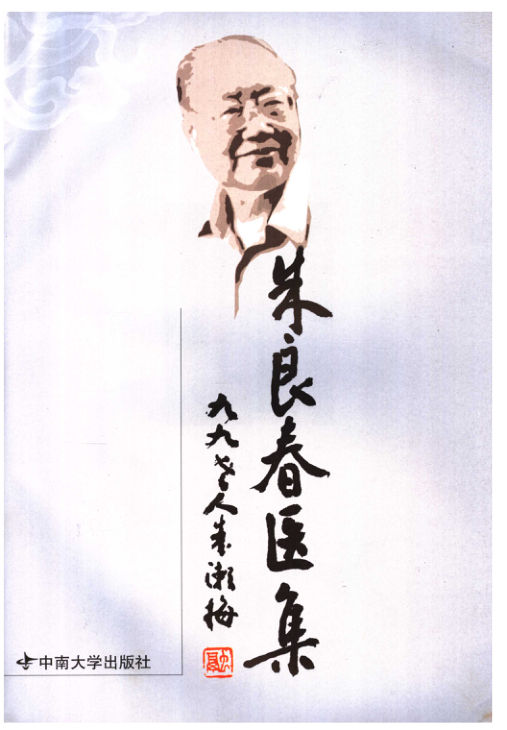 朱良春医集
九九老人朱濒梅
中南大学出版社